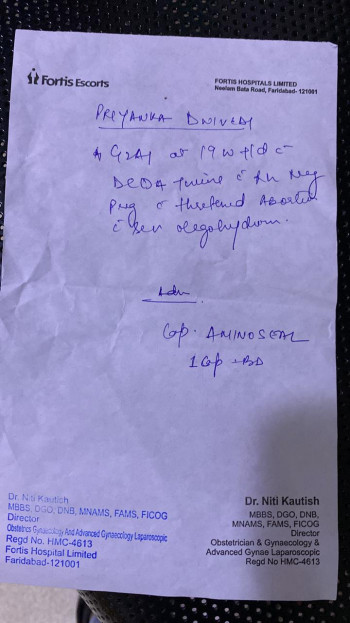 Fortis Escorts
FORTIS HOSPITALS LIMITED
Neelam Bata Road, Faridabad- 121001
PRIYANKA DWIVEDI
G2A1 at 19 w +1d c̄
DCDA c̄ Rh Neg
c̄
c̄ Sev
Adv
Cap. AMINOSEAL
1 Cap - BD
Dr. Niti Kautish
MBBS, DGO, DNB, MNAMS, FAMS, FICOG
Director
Obstetrics Gynaecology And Advanced Gynaecology Laparoscopic
Regd No. HMC-4613
Fortis Hospital Limited
Faridabad-121001
Dr. Niti Kautish
MBBS, DGO, DNB,
MNAMS, FAMS, FICOG
Director
Obstetrician & Gynaecology &
Advanced Gynae Laparoscopic
Regd No HMC-4613